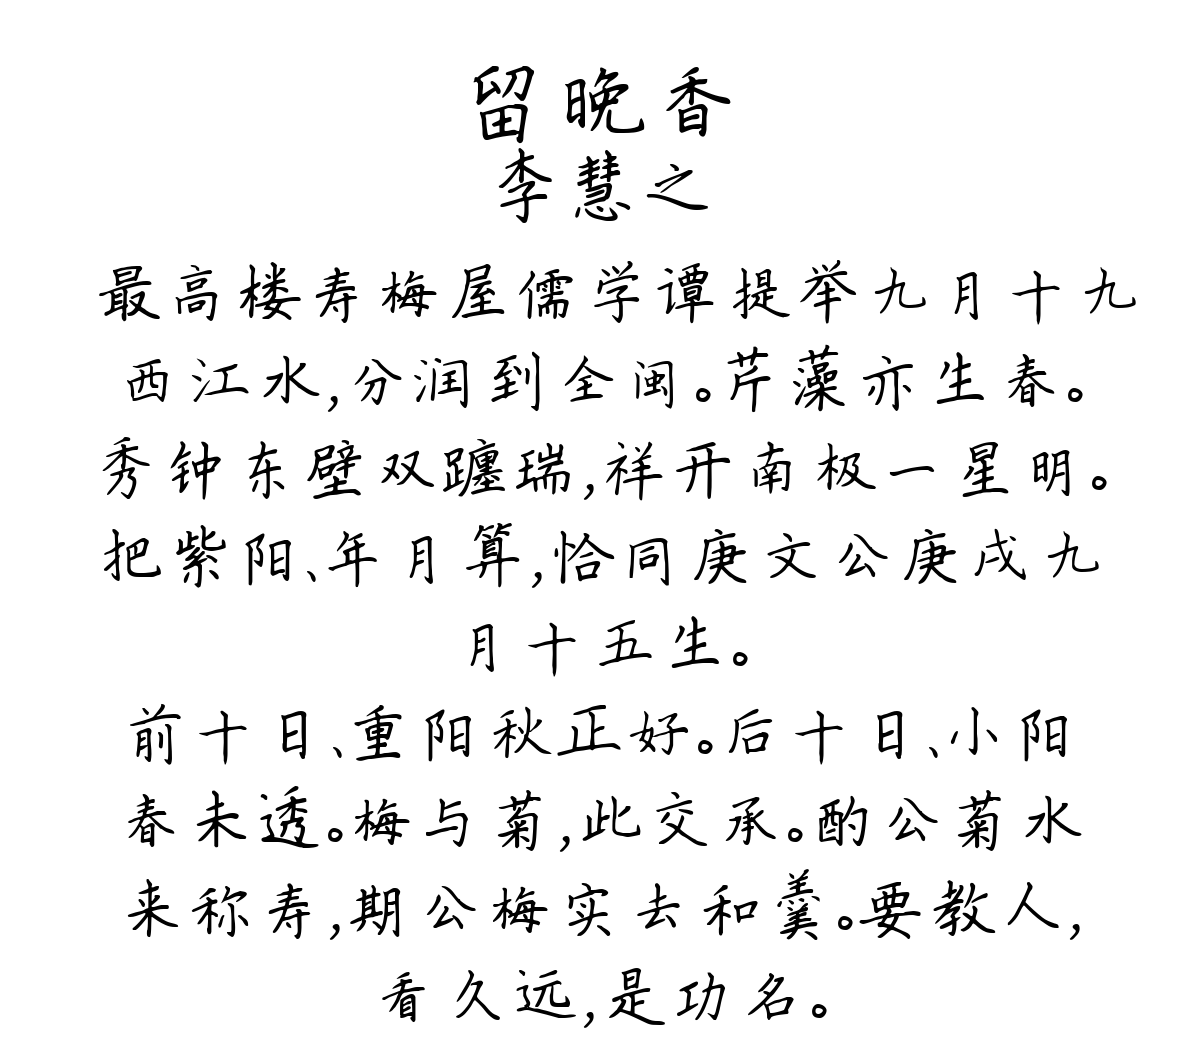 留晚香
李慧之
最高楼寿梅屋儒学谭提举九月十九
西江水,分润到全闽。芹藻亦生春。
秀钟东壁双躔瑞,祥开南极一星明。
把紫阳、年月算,恰同庚文公庚戌九
月十五生。
前十日、重阳秋正好。后十日、小阳
春未透。梅与菊,此交承。酌公菊水
来称寿,期公梅实去和羹。要教人,
看久远,是功名。